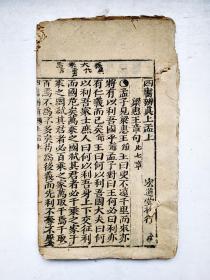 四書辨真上孟上
梁惠王章句上 凡七章
孟子見梁惠王王曰叟不遠千里而來亦
將有以利吾國乎孟子對曰王何必曰利亦
有仁義而已矣王曰何以利吾國大夫曰何
以利吾家士庶人曰何以利吾身上下交征利
而國危矣萬乘之國弒其君者必千乘之家千乘
之國弒其君者必百乘之家萬取千焉千取
百焉不為不多矣苟為後義而先利不奪不饜